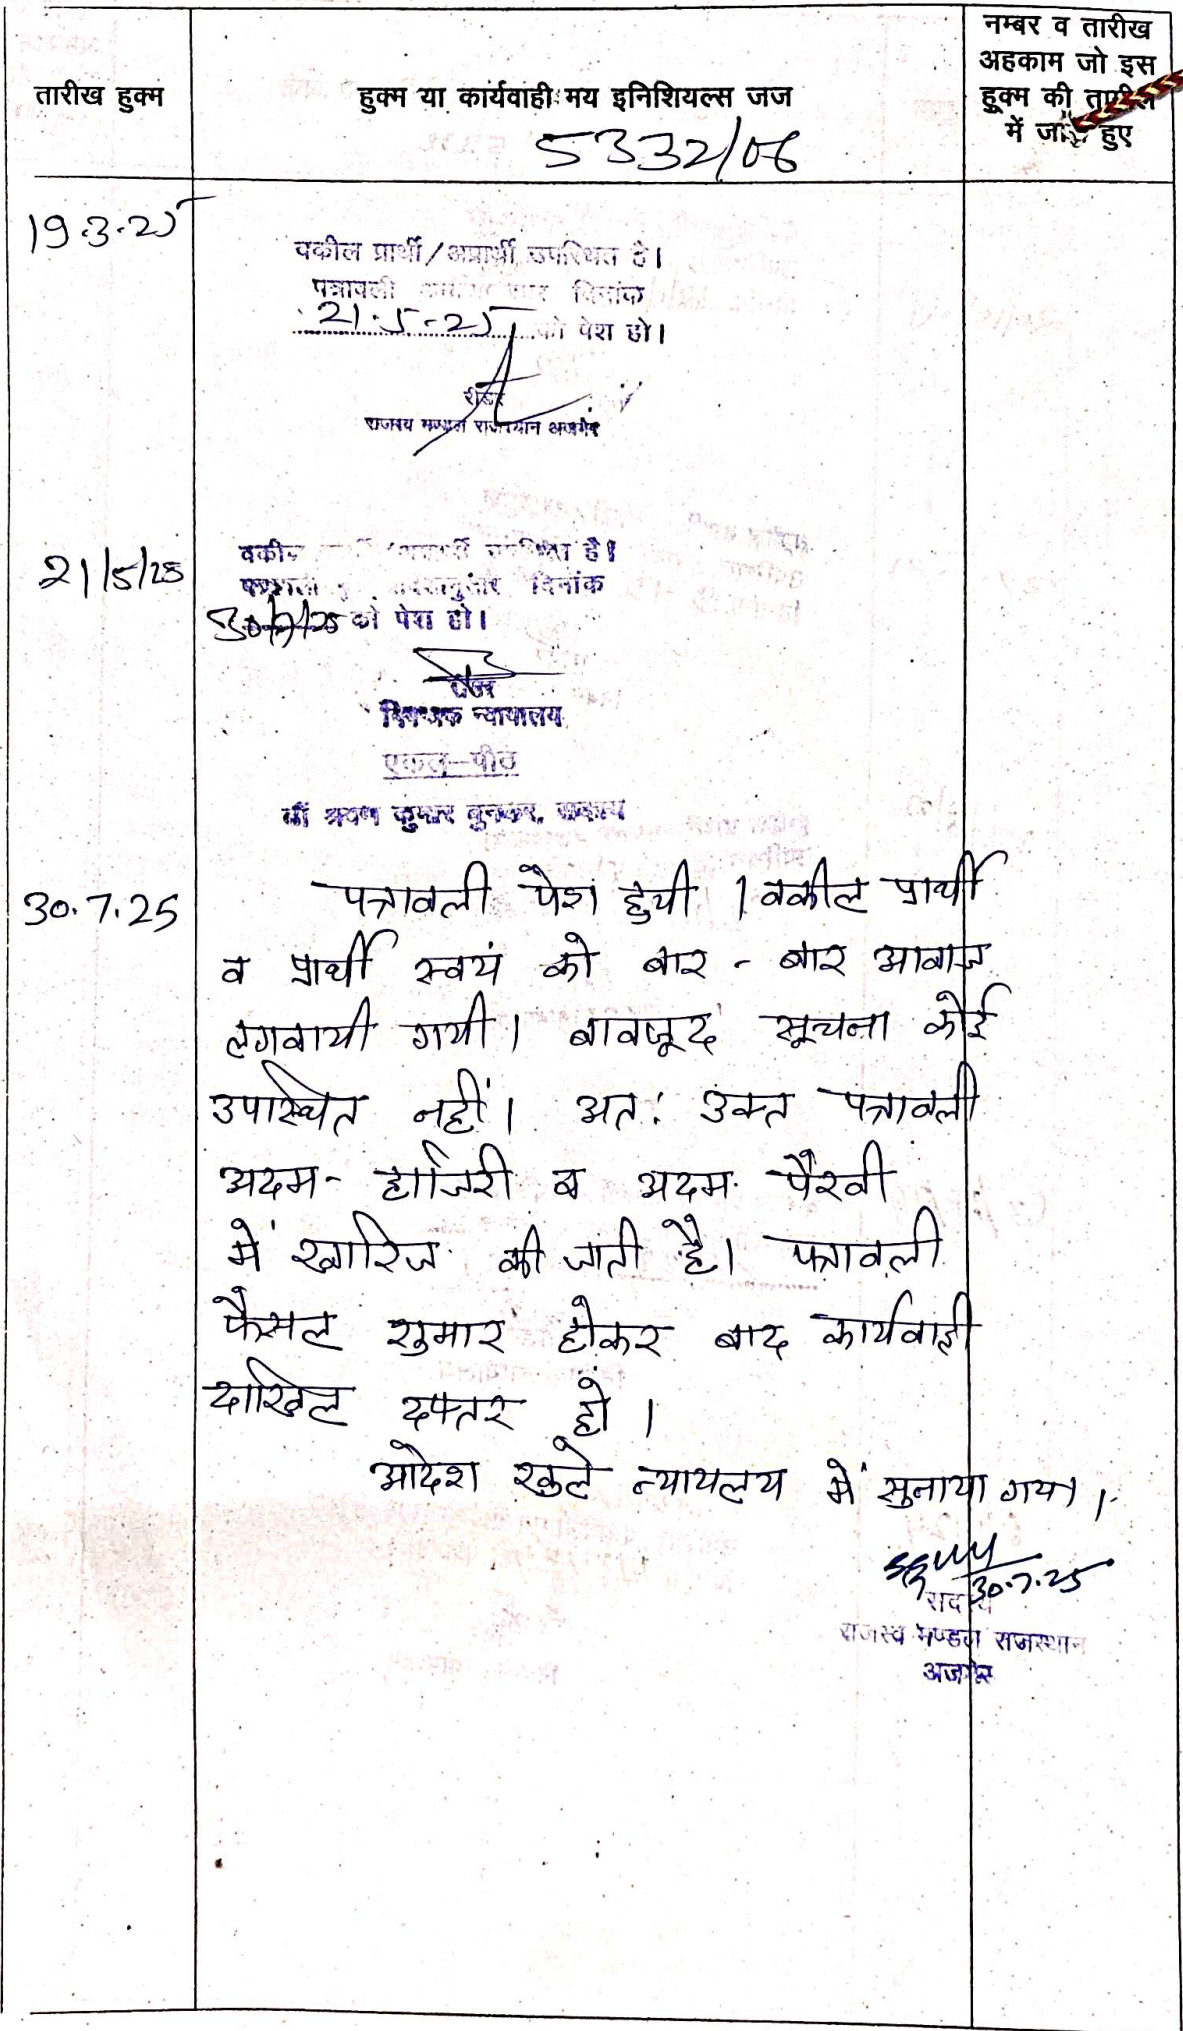 तारीख हुक्म
हुक्म या कार्यवाही मय इनिशियल्स जज
नम्बर व तारीख
अहकाम जो इस
हुक्म की तामील
में जारी हुए
5332/06
19.3.25
वकील प्रार्थी/अप्रार्थी उपस्थित है।
पत्रावली दिनांक
21.5.25 को पेश हो।
रीडर
राजस्व मण्डल राजस्थान अजमेर
21/5/25
वकील है।
दिनांक
30/7/25 को पेश हो।
न्यायालय
एकल-पीठ
श्री श्रवण कुमार बुनकर, सदस्य
30.7.25
पत्रावली पेश हुयी । वकील प्रार्थी
व प्रार्थी स्वयं को बार - बार आवाज
लगवायी गयी। बावजूद सूचना कोई
उपस्थित नहीं। अत: उक्त पत्रावली
अदम- हाजिरी व अदम पैरवी
में खारिज की जाती है। पत्रावली
फैसल शुमार होकर बाद कार्यवाही
दाखिल दफ्तर हो ।
आदेश खुले न्यायलय में सुनाया गया ।
30.7.25
सदस्य
राजस्व मण्डल राजस्थान
अजमेर